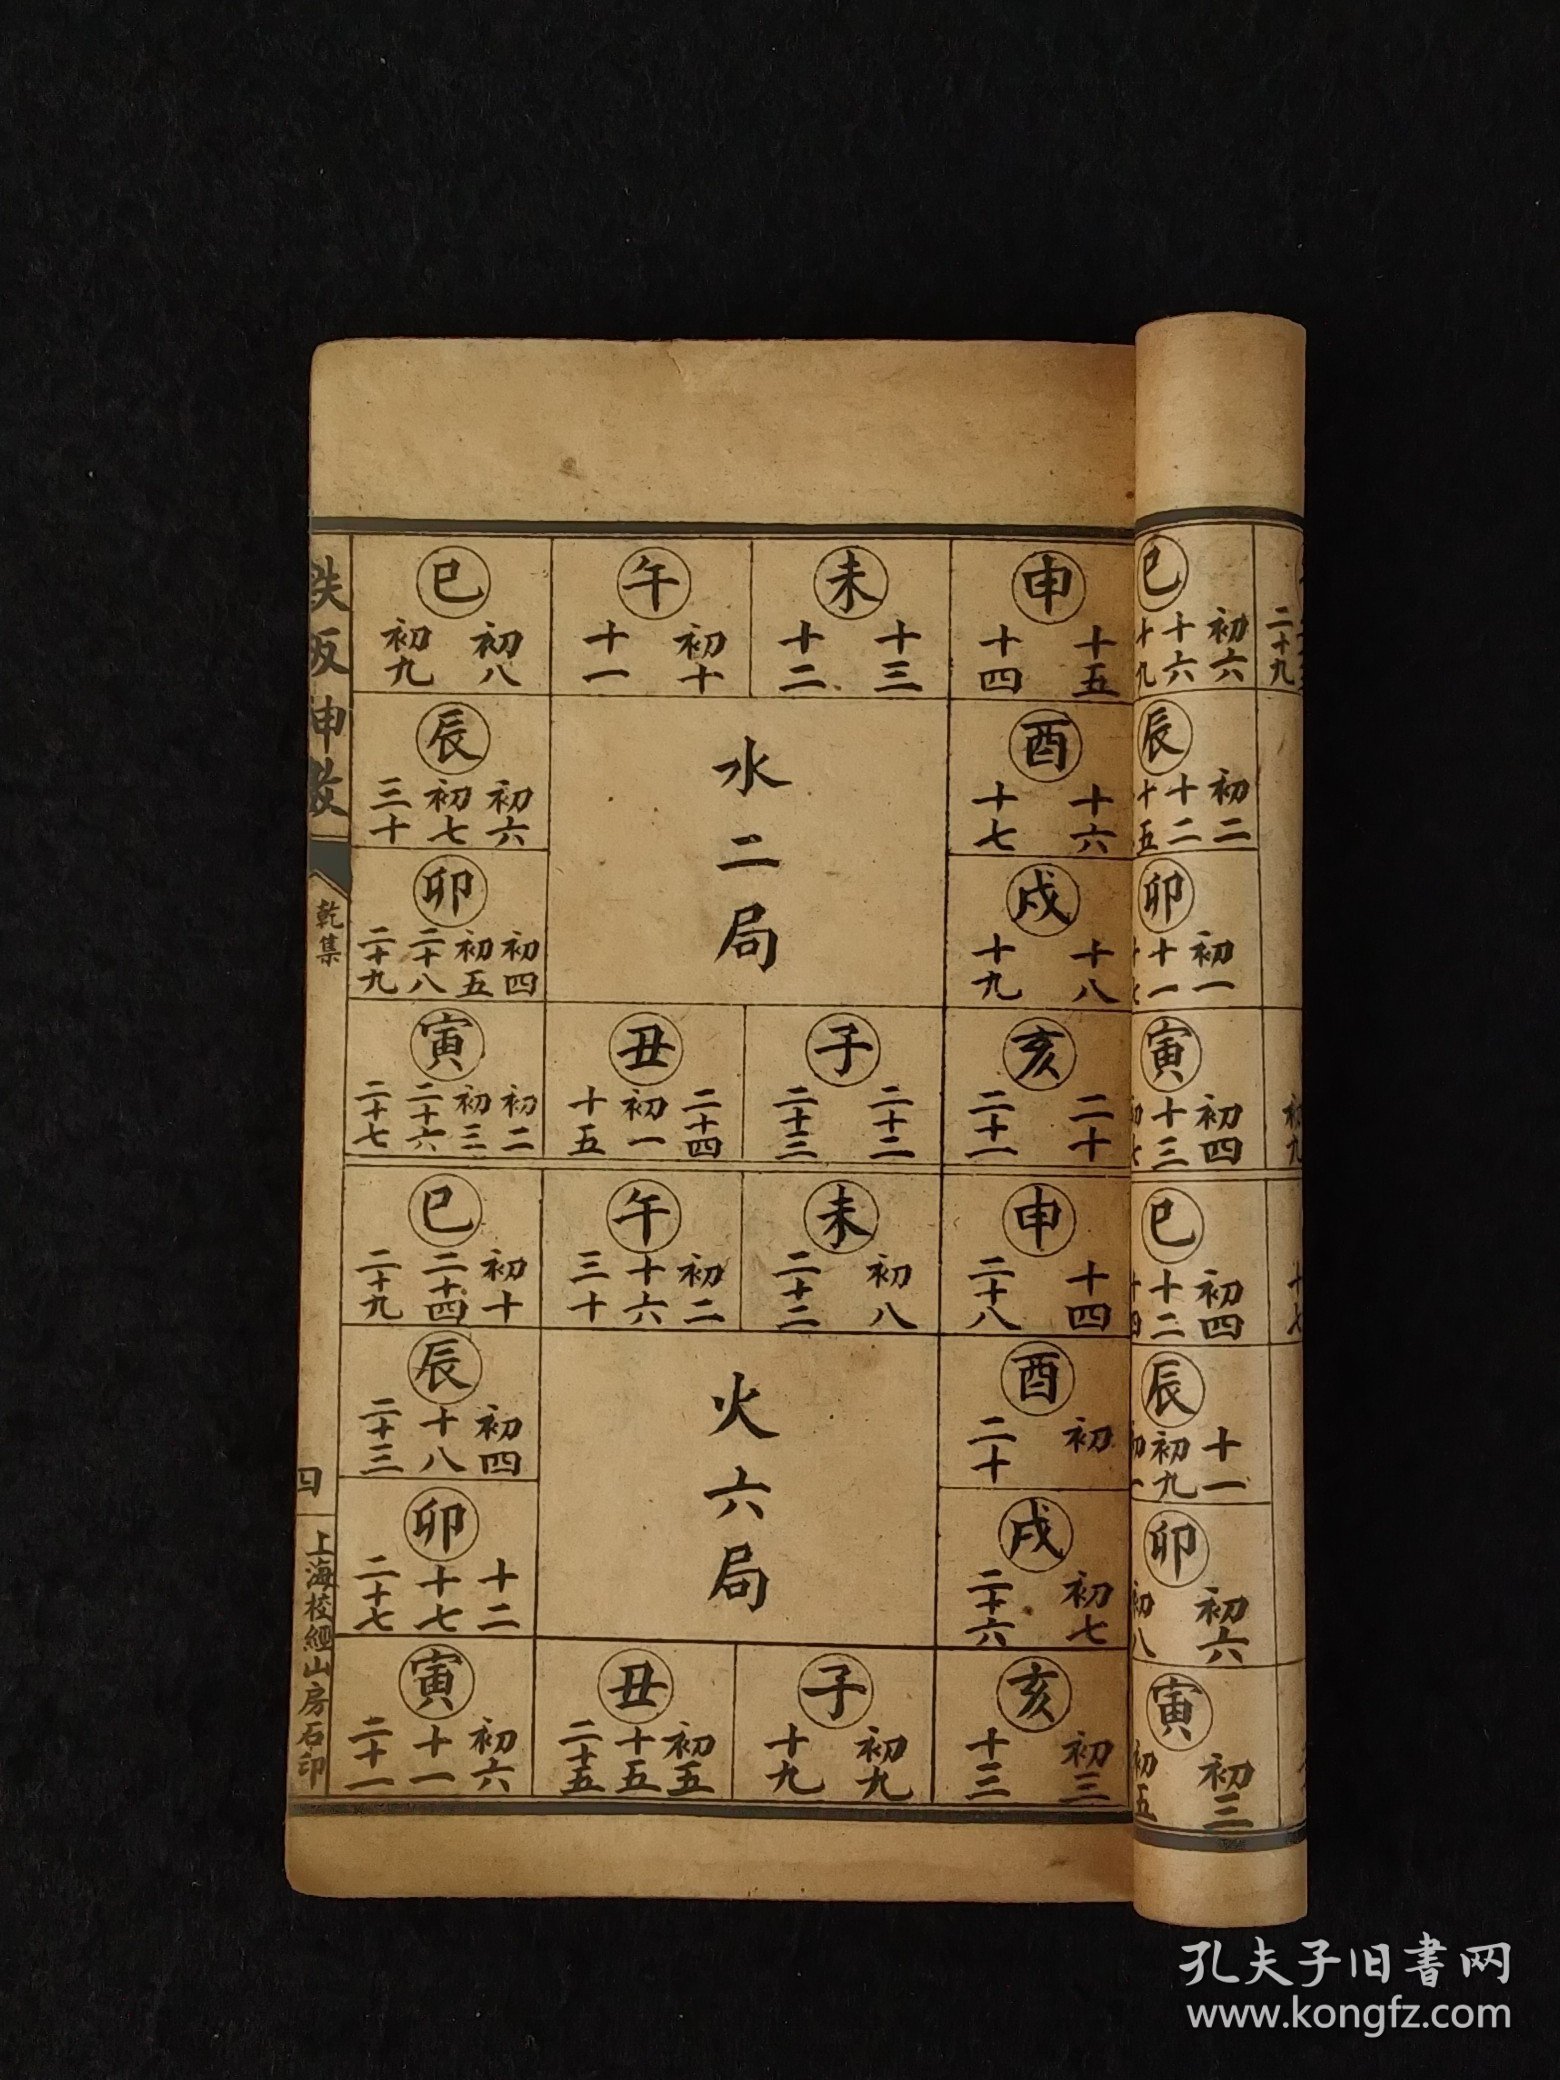 巳 初八 初九
午 初十 十一
未 十三 十二
申 十五 十四
辰 初六 初七 三十
酉 十六 十七
卯 初四 初五 二十八 二十九
戌 十八 十九
寅 初二 初三 二十六 二十七
丑 二十四 初一 十五
子 二十二 二十三
亥 二十 二十一
水二局
巳 初十 二十四 二十九
午 初二 十六 三十
未 初八 二十二
申 十四 二十八
辰 初四 十八 二十三
酉 初 二十
卯 十二 十七 二十七
戌 初七 二十六
寅 初六 十一 二十一
丑 初五 十五 二十五
子 初九 十九
亥 初三 十三
火六局
鉄板神數
乾集
四
上海校經山房石印
巳 初六 十六 十九
辰 初二 十二 十五
卯 初一 十一
寅 初四 十三
巳 初四 十二 十四
辰 十一 初九
卯 初六 初八
寅 初三 初五
二十九
初九
十七
孔夫子旧書网
www.kongfz.com